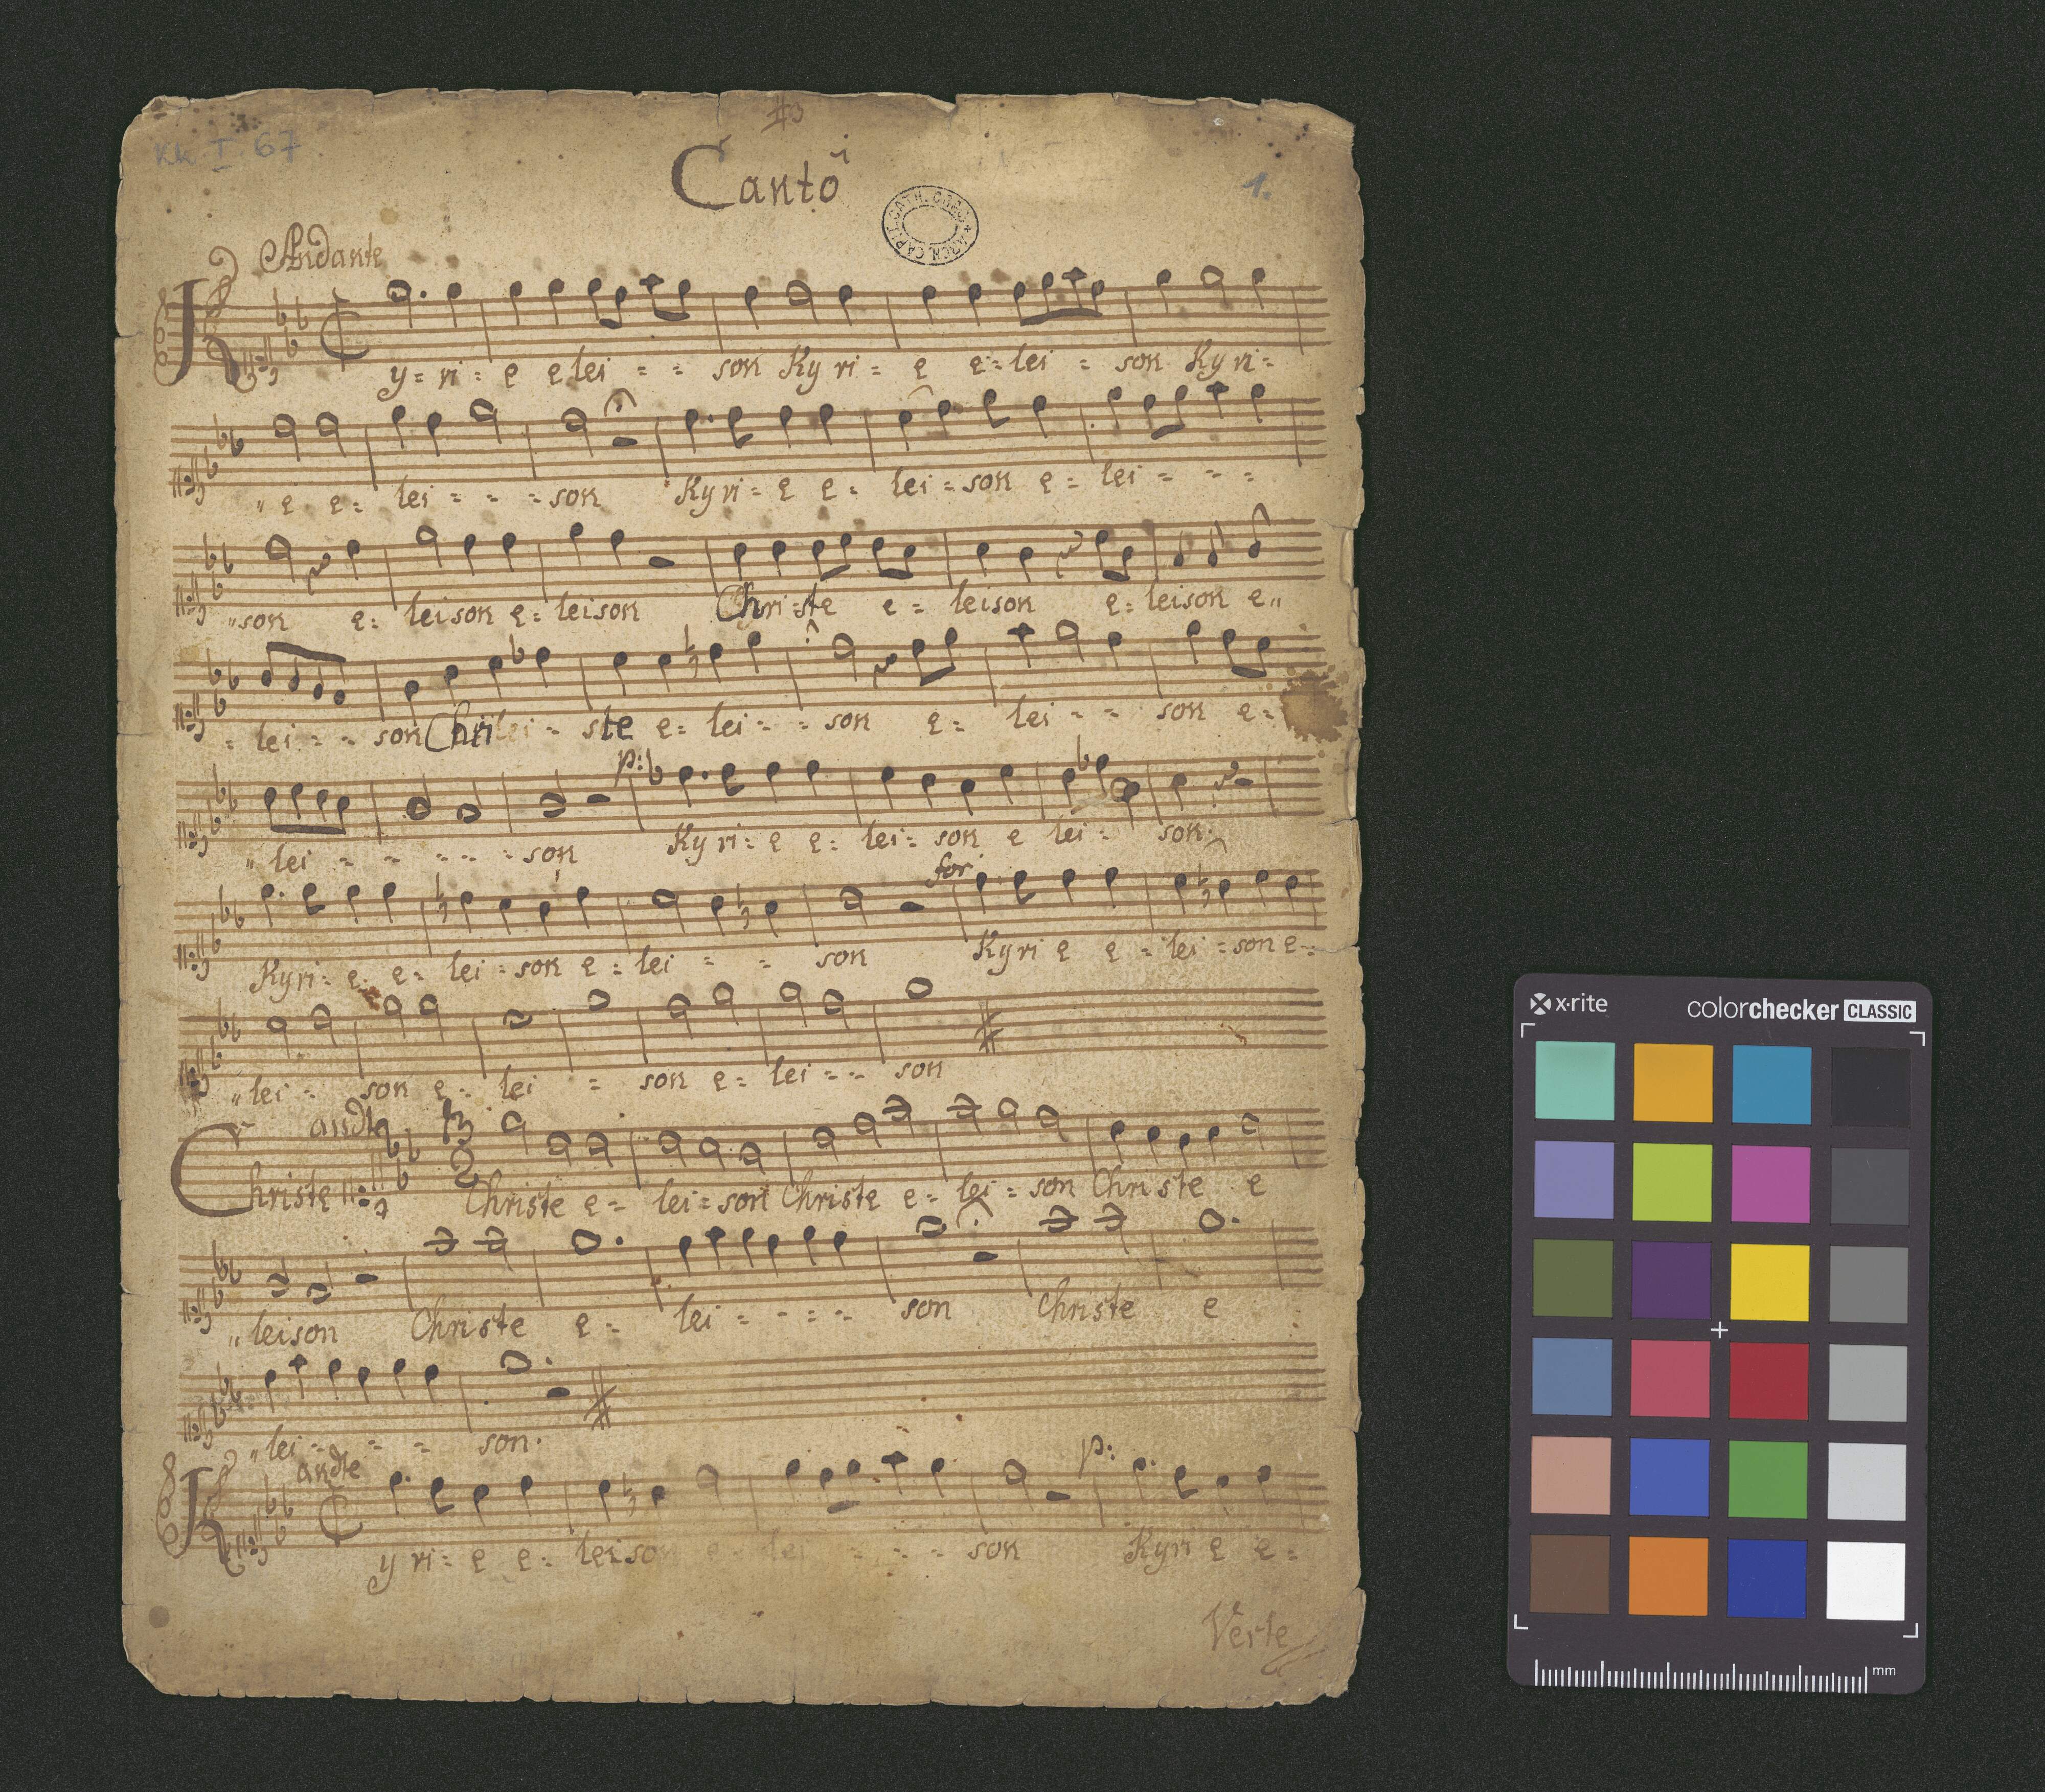 KK I. 67
Canto i
1.
Andante
Ky = ri = e e lei = = son Ky ri = e e = lei = son Ky ri =
" e e = lei = = = son Ky ri = e e = lei = son e = lei = = =
" son e = leison e = leison Chri = ste e = leison e = leison e "
= lei = = son Chri = ste e = lei = = son e = lei = = son e =
p:
" lei = = = = = son Ky ri = e e = lei = son e lei = son.
for
Kyri = e e = lei = son e = lei = = son Kyri e e = lei = son e =
" lei = son e = lei = son e = lei = = son
andte 3 2
Christe Christe e = lei = son Christe e = lei = son Christe e
" leison Christe e = lei = = = = son Christe e
" lei = = = son.
andte p:
Ky ri = e e = leison e = lei = = = son Kyri e e =
Verte
x·rite
colorchecker CLASSIC
mm